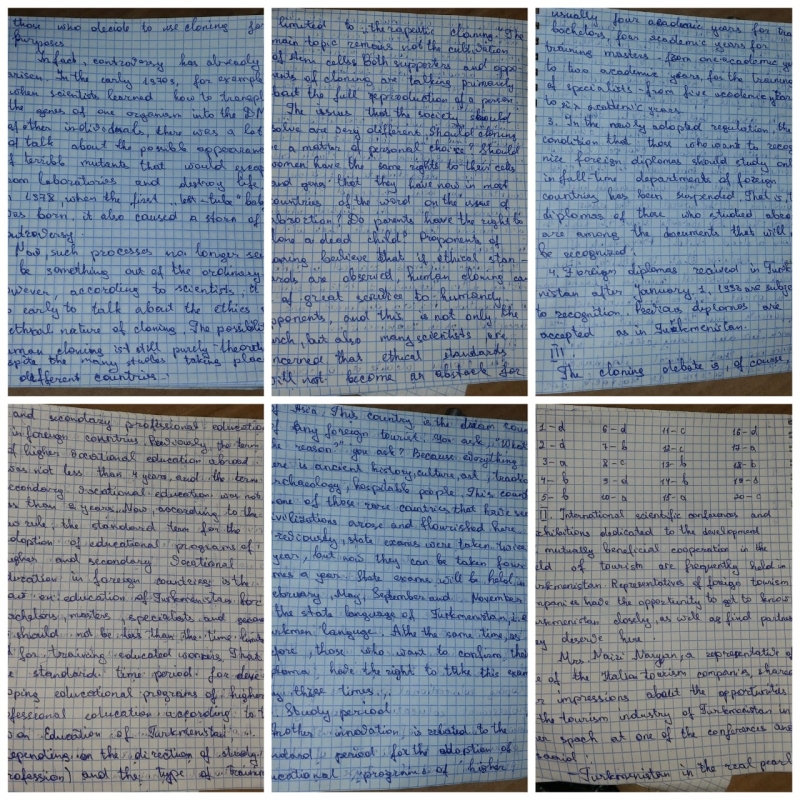 those who decide to use cloning for
purposes.
In fact, controversy has already
arisen. In the early 1970s, for example
when scientists learned how to transpl
the genes of one organism into the DN
of other individuals, there was a lot
of talk about the possible appearance
of terrible mutants that would escap
from laboratories and destroy life.
1978, when the first test-tube bab
was born, it also caused a storm of
controversy.
Now, such processes no longer see
be something out of the ordinary
owever, according to scientists, it
early to talk about the ethics
ethical nature of cloning. The possibilit
uman cloning is still purely theoreti
spite the many studies taking place
different countries.
limited to therapeutic cloning. The
main topic remains not the cultivation
of stem cells. Both supporters and oppo
ents of cloning are talking primarily
bout the full reproduction of a person.
The issues that the society should
solve are very different. Should cloning
e a matter of personal choice? Should
women have the same rights to their cells
and genes that they have now in most
countries of the word on the issue of
abortion? Do parents have the right to
lone a dead child? Proponents of
oning believe that if ethical stan-
ards are observed, human cloning can
of great service to humanity.
pponents, and this is not only the
urch, but also many scientists are
ncerned that ethical standards
will not become an abstacle for
usually four academic years for trai
bachelors, four academic years for
training masters - from one academic ye
to two academic years, for the training
of specialists - from five academic years
to six academic years.
3. In the newly adopted regulation, the
condition that those who want to recog
nize foreign diplomas should study onl
in full-time departments of foreign
countries has been suspended. That is,
diplomas of those who studied abroa
are among the documents that will
be recognized.
4. Foreign diplomas received in Turk
nistan after January 1, 1993 are subjec
to recognition. Previous diplomas are
accepted as in Turkmenistan.
III
The cloning debate is, of course,
and secondary professional education
in foreign countries. Previously, the term
of higher vocational education abroad
was not less than 4 years, and the term
econdary vocational education was not
ss than 2 years. Now, according to the
ew rule, the standard term for the
doption of educational programs of
igher and secondary vocational
ducation in foreign countries is the
aw on education of Turkmenistan for
achelors, masters, specialists, and secon
should not be less than the time limit
d for training educated workers. That
e standard time period for deve
oping educational programs of higher
rofessional education according to t
w on Education of Turkmenistan
epending on the direction of study
rofession) and the type of training
of Asia. This country is the dream coun
of any foreign tourist. You ask "What
he reason?" you ask? Because everything
ere is ancient history, culture, art, traditio
rchaeology, hospitable people. This coun
one of those rare countries that have see
civilizations arose and flourished here
reviously, state exams were taken twice
year, but now they can be taken four
mes a year. State exams will be held in
ebruary, May, September and November
the state language of Turkmenistan, i.e.
urkmen language. At the same time, as
efore, those who want to confirm their
iploma, have the right to take this exam
y three times.
Study period
nother innovation is related to the
andard period for the adoption of
ucational programs of higher
1-d 6-d 11-c 16-d
2-d 7-b 12-c 17-a
3-a 8-c 13-b 18-b
4-b 9-d 14-b 19-d
5-b 10-a 15-a 20-c
II International scientific conferences and
xhibitions dedicated to the development
mutually beneficial cooperation in the
eld of tourism are frequently held in
urkmenistan. Representatives of foreign tourism
mpanies have the opportunity to get to know
urkmenistan closely, as well as find partners
ey deserve here.
Mrs. a representative of
e of the Italia tourism companies, shared
r impressions about the opportunities
the tourism industry of Turkmenistan in
er speach at one of the conferences and
said:
- Turkmenistan is the real pearl